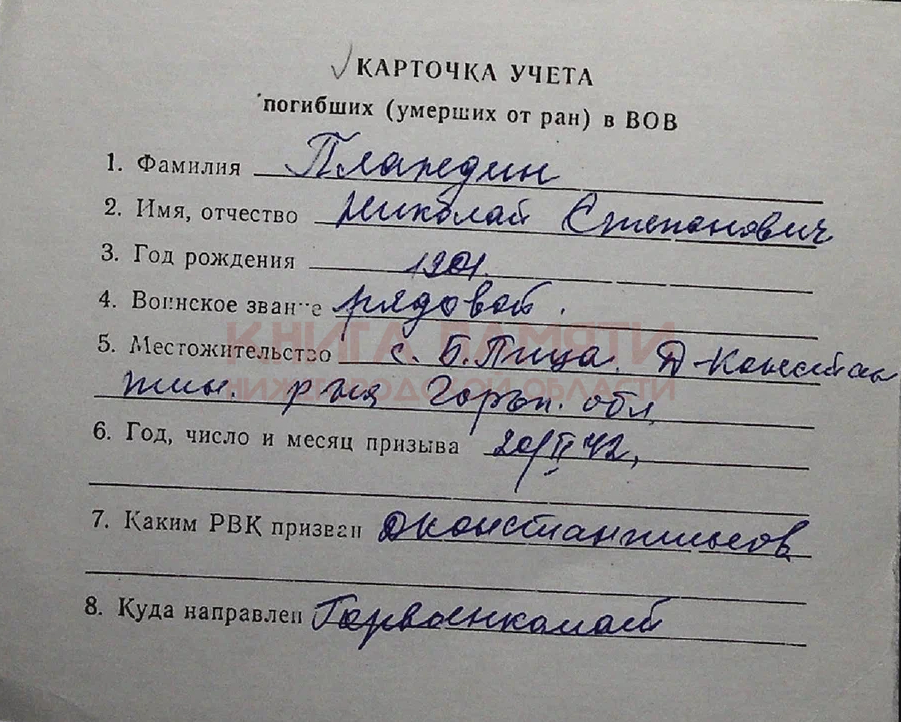 КАРТОЧКА УЧЕТА
погибших (умерших от ран) в ВОВ
1. Фамилия Пландин
2. Имя, отчество Николай Степанович
3. Год рождения 1901.
4. Воинское звание рядовой.
КНИГА ПАМЯТИ
5. Местожительство с. Б.Пица. Д-Констан
НИЖЕГОРОДСКОЙ ОБЛАСТИ
тин. р-на Горьк. обл.
6. Год, число и месяц призыва 20/II 42,
7. Каким РВК призван Дконстантиньсов
8. Куда направлен Горвоенкомат